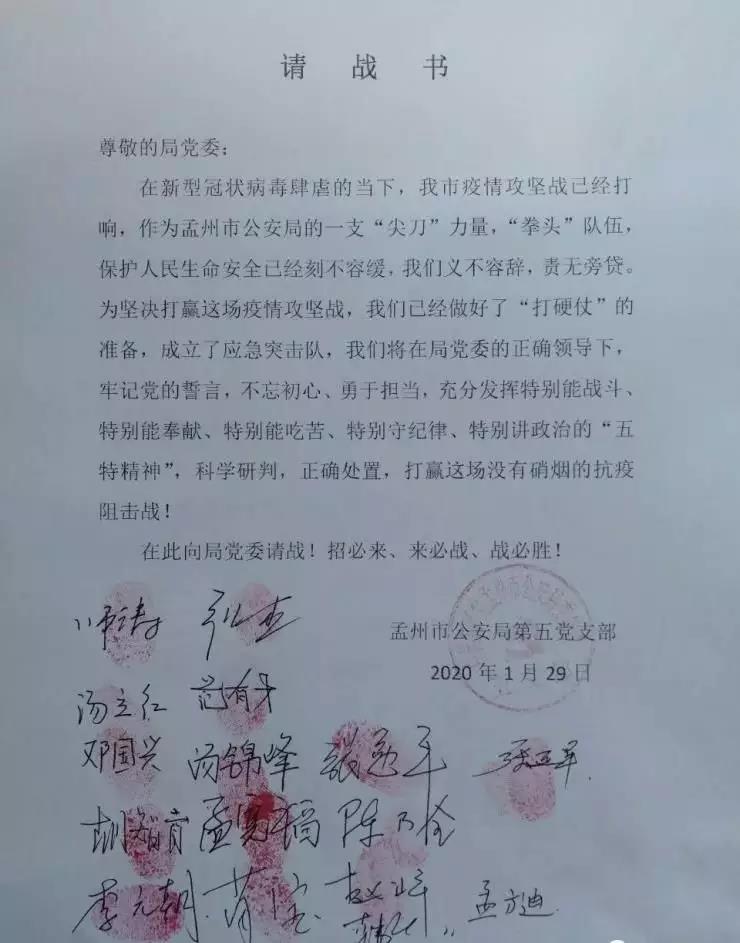 请 战 书
尊敬的局党委：
在新型冠状病毒肆虐的当下，我市疫情攻坚战已经打
响，作为孟州市公安局的一支“尖刀”力量，“拳头”队伍，
保护人民生命安全已经刻不容缓，我们义不容辞，责无旁贷。
为坚决打赢这场疫情攻坚战，我们已经做好了“打硬仗”的
准备，成立了应急突击队，我们将在局党委的正确领导下，
牢记党的誓言，不忘初心、勇于担当，充分发挥特别能战斗、
特别能奉献、特别能吃苦、特别守纪律、特别讲政治的“五
特精神”，科学研判，正确处置，打赢这场没有硝烟的抗疫
阻击战！
在此向局党委请战！招必来、来必战、战必胜！
孟州市公安局第五党支部
2020 年 1 月 29 日
师涛
汤立红
邓国兴 汤锦峰
陈乃全
李元朝 孟方迪